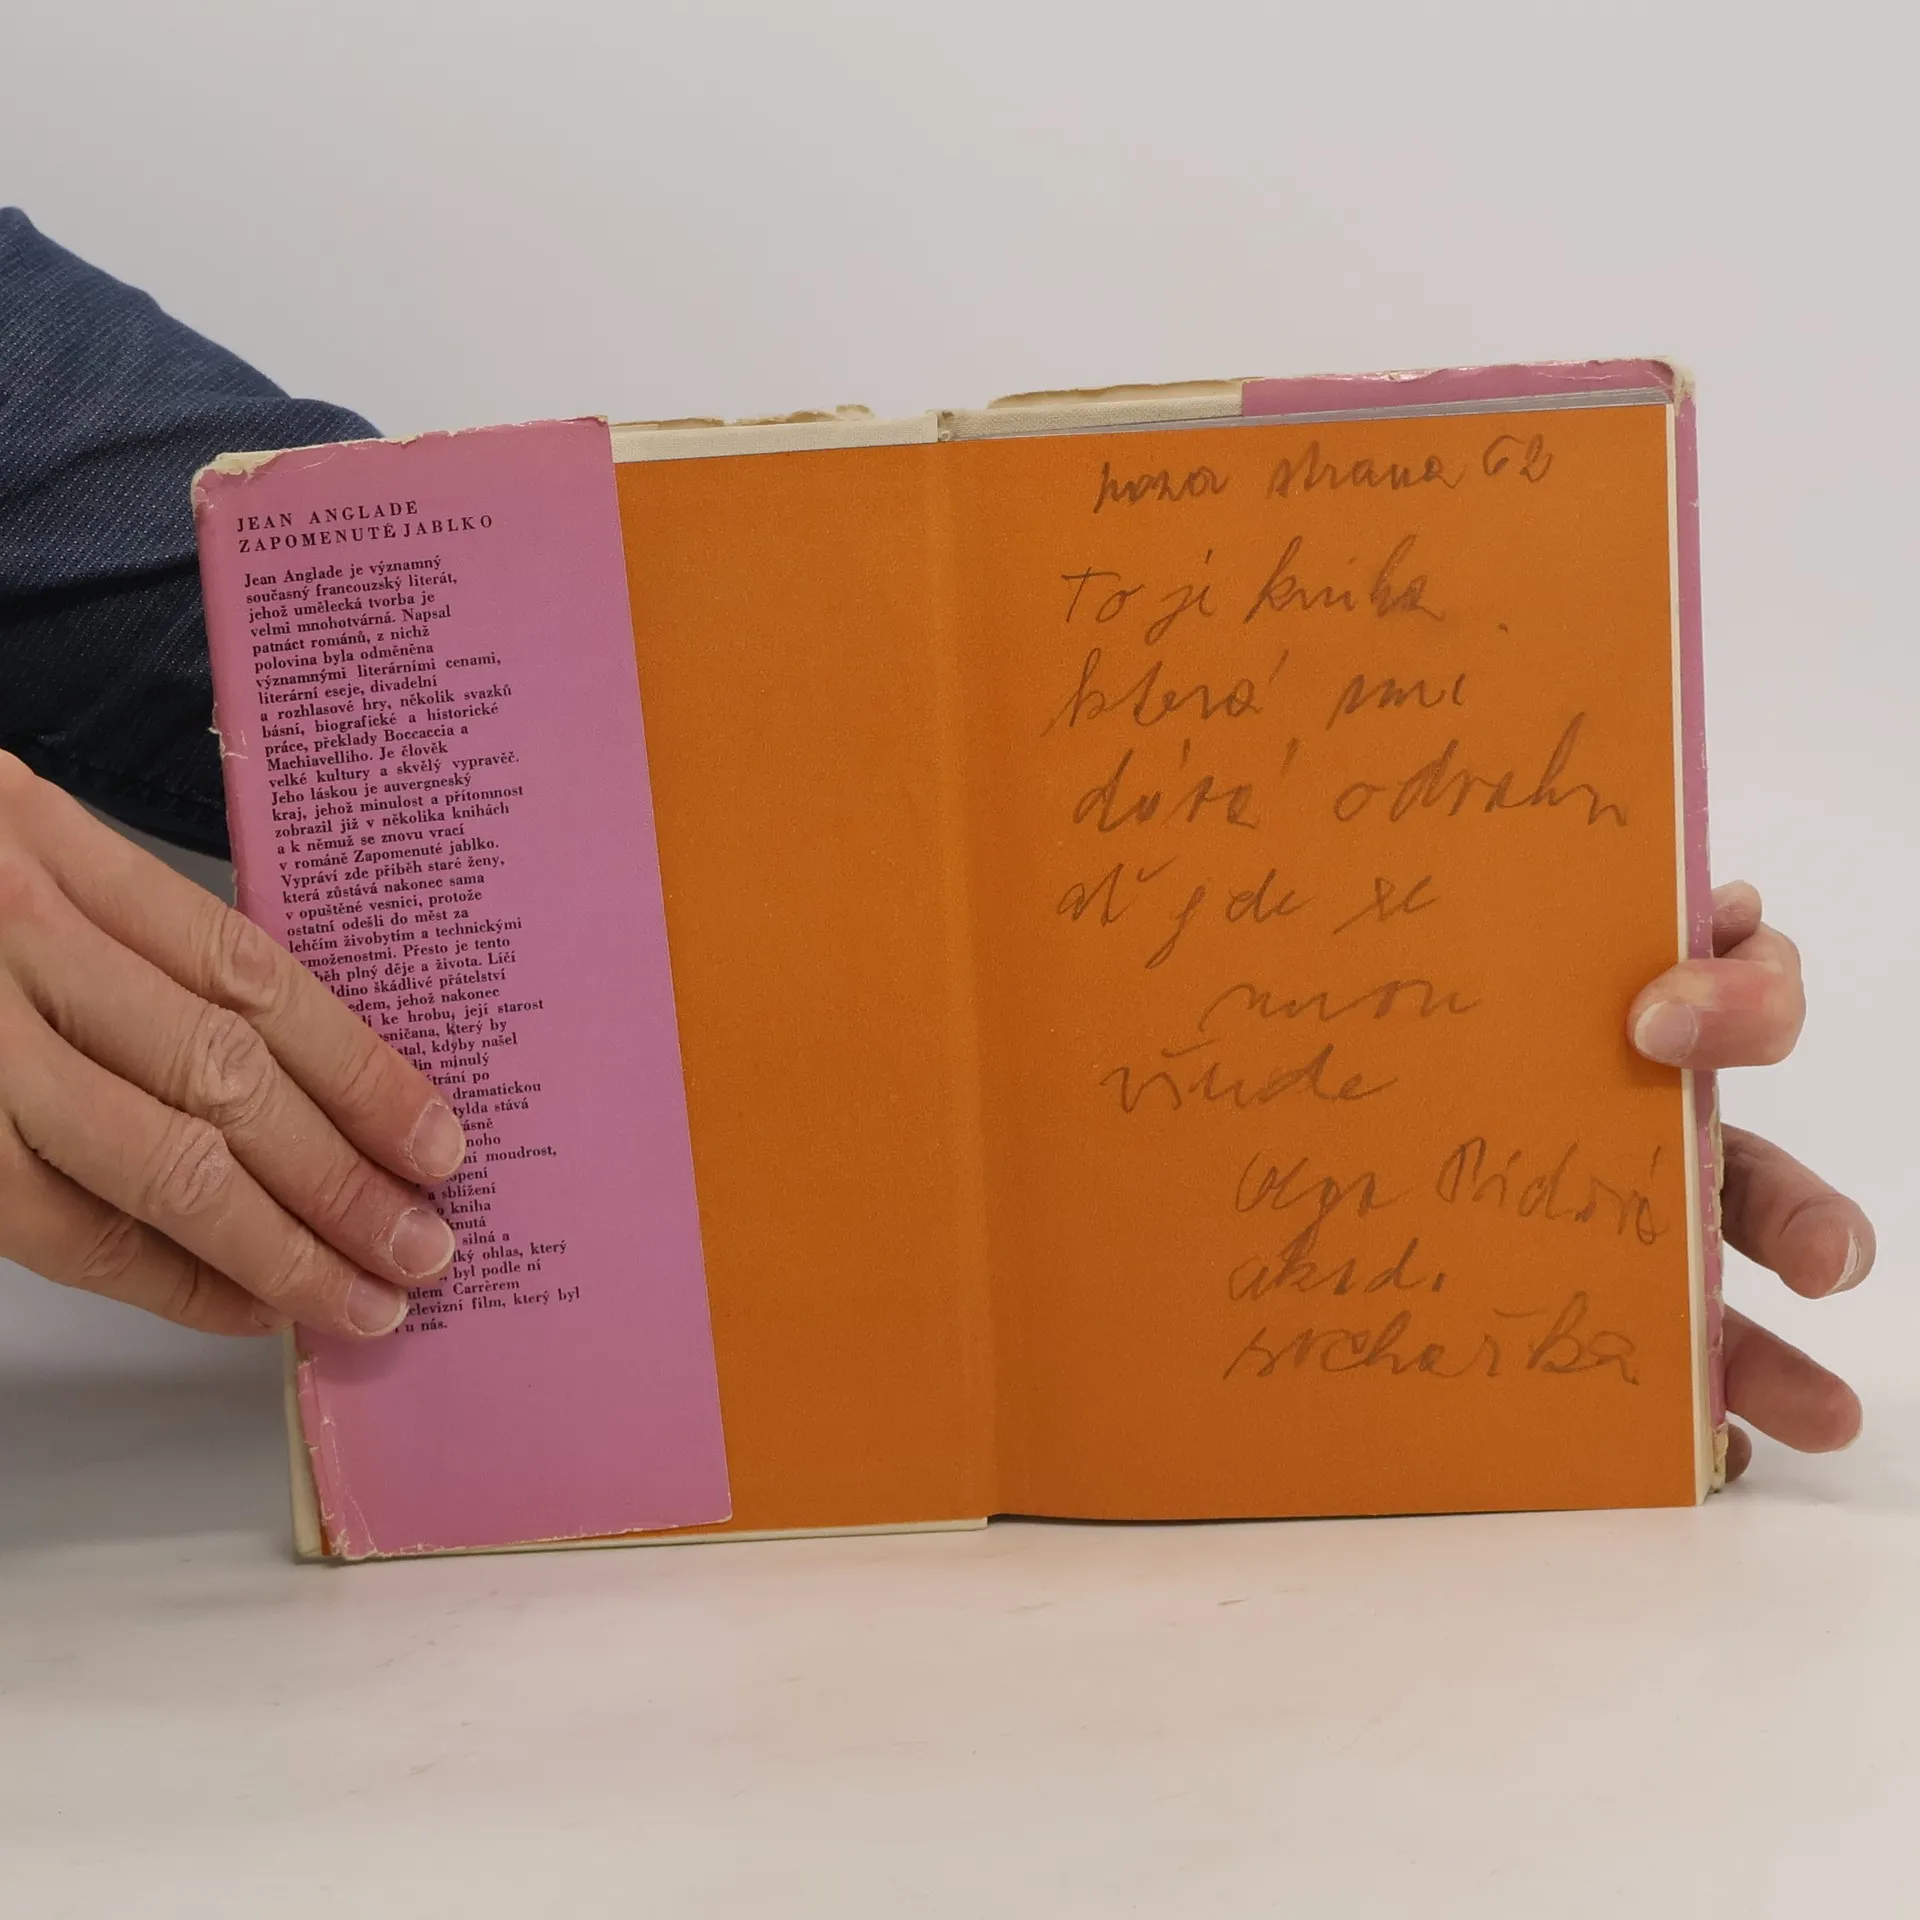 JEAN ANGLADE
ZAPOMENUTÉ JABLKO
Jean Anglade je významný
současný francouzský literát,
jehož umělecká tvorba je
velmi mnohotvárná. Napsal
patnáct románů, z nichž
polovina byla odměněna
významnými literárními cenami,
literární eseje, divadelní
a rozhlasové hry, několik svazků
básní, biografické a historické
práce, překlady Boccaccia a
Machiavelliho. Je člověk
velké kultury a skvělý vypravěč.
Jeho láskou je auvergneský
kraj, jehož minulost a přítomnost
zobrazil již v několika knihách
a k němuž se znovu vrací
v románě Zapomenuté jablko.
Vypráví zde příběh staré ženy,
která zůstává nakonec sama
v opuštěné vesnici, protože
ostatní odešli do měst za
lehčím živobytím a technickými
vymoženostmi. Přesto je tento
běh plný děje a života. Líčí
ldino škádlivé přátelství
edem, jehož nakonec
í ke hrobu, její starost
sničana, který by
stal, kdyby našel
din minulý
trání po
dramatickou
tylda stává
ásně
noho
ní moudrost,
opení
a sblížení
o kniha
knutá
silná a
lký ohlas, který
, byl podle ní
ulem Carrèrem
elevizní film, který byl
i u nás.
pozor strana 62
To je kniha
která mi
dává odvahu
ať jde se
mnou
všude
Olga
akad.
sochařka